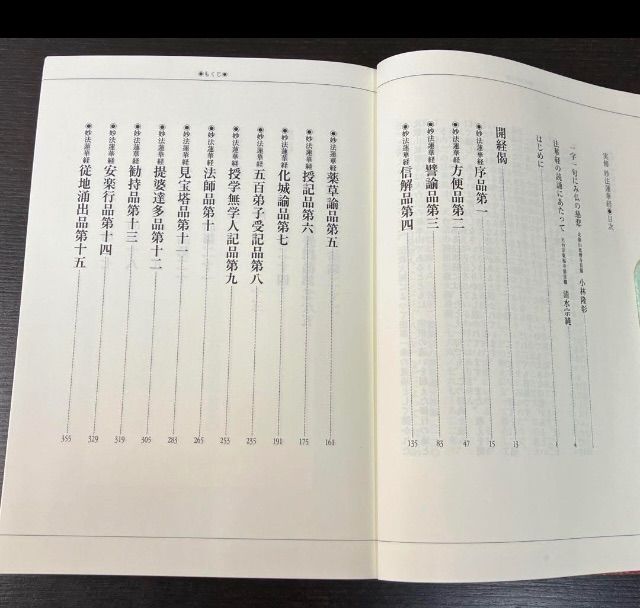 実修 妙法蓮華経◉目次
一字一句にみ仏の慈悲 小林隆彰
法華経の読誦にあたって 清水宗純
はじめに 1
開経偈 13
◉妙法蓮華経 序品第一 15
◉妙法蓮華経 方便品第二 47
◉妙法蓮華経 譬諭品第三 83
◉妙法蓮華経 信解品第四 135
◉もくじ◉
◉妙法蓮華経 薬草諭品第五 161
◉妙法蓮華経 授記品第六 175
◉妙法蓮華経 化城諭品第七 191
◉妙法蓮華経 五百弟子受記品第八 235
◉妙法蓮華経 授学無学人記品第九 253
◉妙法蓮華経 法師品第十 265
◉妙法蓮華経 見宝塔品第十一 283
◉妙法蓮華経 提婆達多品第十二 305
◉妙法蓮華経 勧持品第十三 319
◉妙法蓮華経 安楽行品第十四 329
◉妙法蓮華経 従地涌出品第十五 355